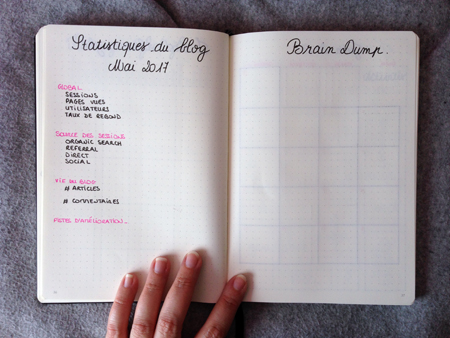 Statistiques du blog
Mai 2017
GLOBAL
SESSIONS
PAGES VUES
UTILISATEURS
TAUX DE REBOND
SOURCE DES SESSIONS
ORGANIC SEARCH
REFERRAL
DIRECT
SOCIAL
VIE DU BLOG
# ARTICLES
# COMMENTAIRES
PISTES D'AMÉLIORATION.
Brain Dump.